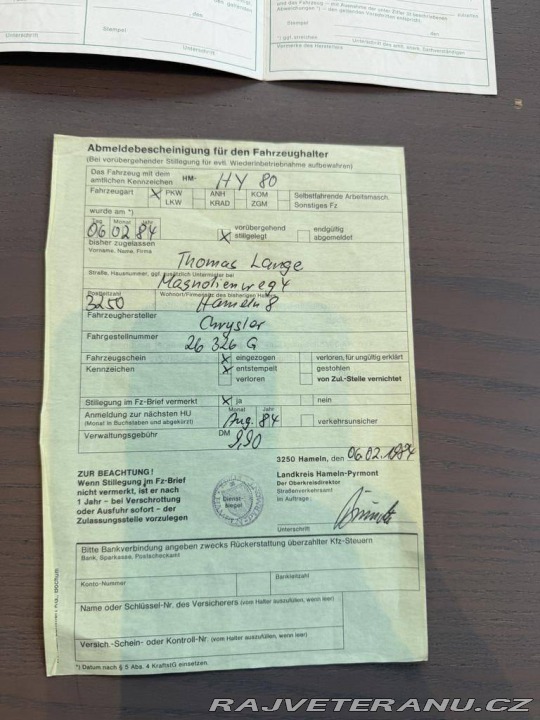 den
Unterschrift
Stempel
Unterschrift
Stempel
Vermerke des Herstellers
Abmeldebescheinigung für den Fahrzeughalter
(Bei vorübergehender Stillegung für evtl. Wiederinbetriebnahme aufbewahren)
Das Fahrzeug mit dem
amtlichen Kennzeichen HM- HY 80
Fahrzeugart X PKW ANH KOM Selbstfahrende Arbeitsmasch.
LKW KRAD ZGM Sonstiges Fz
wurde am *)
Tag Monat Jahr
06 02 84 X vorübergehend stillgelegt endgültig abgemeldet
bisher zugelassen
Vorname, Name, Firma
Thomas Lange
Straße, Hausnummer, ggf. zusätzlich Untermieter bei
Magnolienweg 4
Postleitzahl Wohnort/Firmensitz des bisherigen Halters
3250 Hameln 8
Fahrzeughersteller
Chrysler
Fahrgestellnummer
26 326 G
Fahrzeugschein X eingezogen verloren, für ungültig erklärt
Kennzeichen X entstempelt gestohlen
verloren von Zul.-Stelle vernichtet
Stillegung im Fz-Brief vermerkt X ja nein
Anmeldung zur nächsten HU Monat Jahr
(Monat in Buchstaben und abgekürzt) Aug. 84 verkehrsunsicher
Verwaltungsgebühr DM 9,90
3250 Hameln, den 06.02.1984
ZUR BEACHTUNG!
Wenn Stillegung im Fz-Brief
nicht vermerkt, ist er nach
1 Jahr - bei Verschrottung
oder Ausfuhr sofort - der
Zulassungsstelle vorzulegen
Dienst-
siegel
Landkreis Hameln-Pyrmont
Der Oberkreisdirektor
Straßenverkehrsamt
Im Auftrage:
Unterschrift
Bitte Bankverbindung angeben zwecks Rückerstattung überzahlter Kfz-Steuern
Bank, Sparkasse, Postscheckamt
Konto-Nummer Bankleitzahl
Name oder Schlüssel-Nr. des Versicherers (vom Halter auszufüllen, wenn leer)
Versich.-Schein- oder Kontroll-Nr. (vom Halter auszufüllen, wenn leer)
*) Datum nach § 5 Abs. 4 KraftStG einsetzen.
RAJVETERANU.CZ